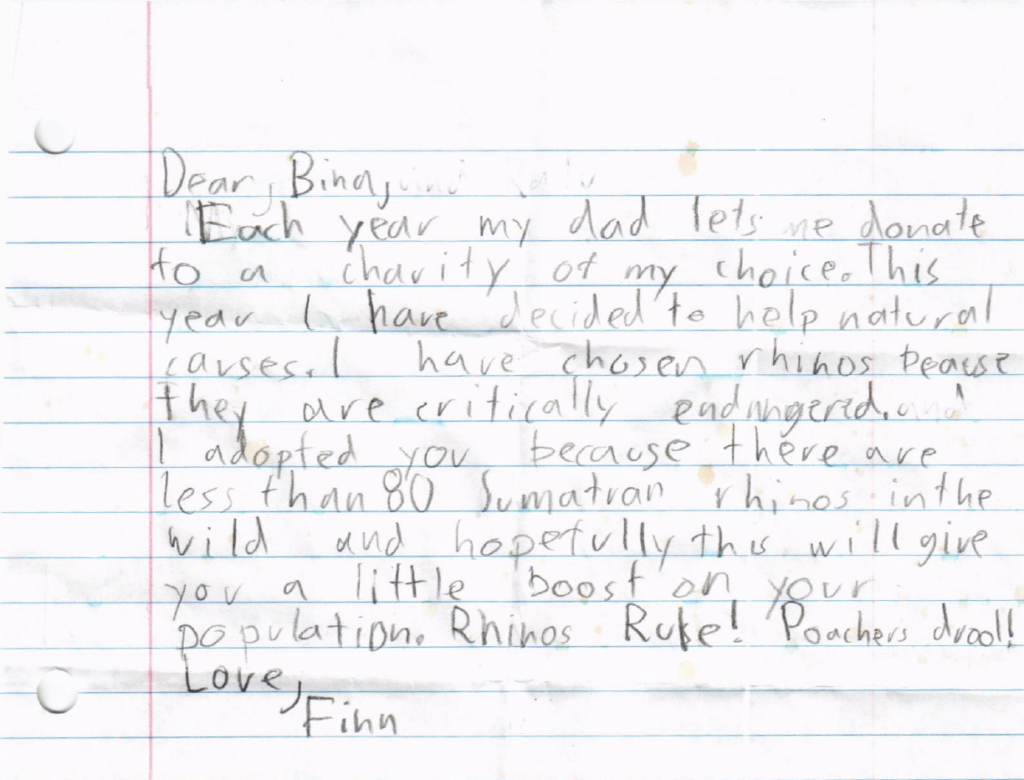 Dear, Bina,
Each year my dad lets me donate
to a charity of my choice. This
year I have decided to help natural
causes. I have chosen rhinos becase
they are critically endangered.
I adopted you because there are
less than 80 Sumatran rhinos in the
wild and hopefully this will give
you a little boost on your
population. Rhinos Rule! Poachers drool!
Love,
Finn